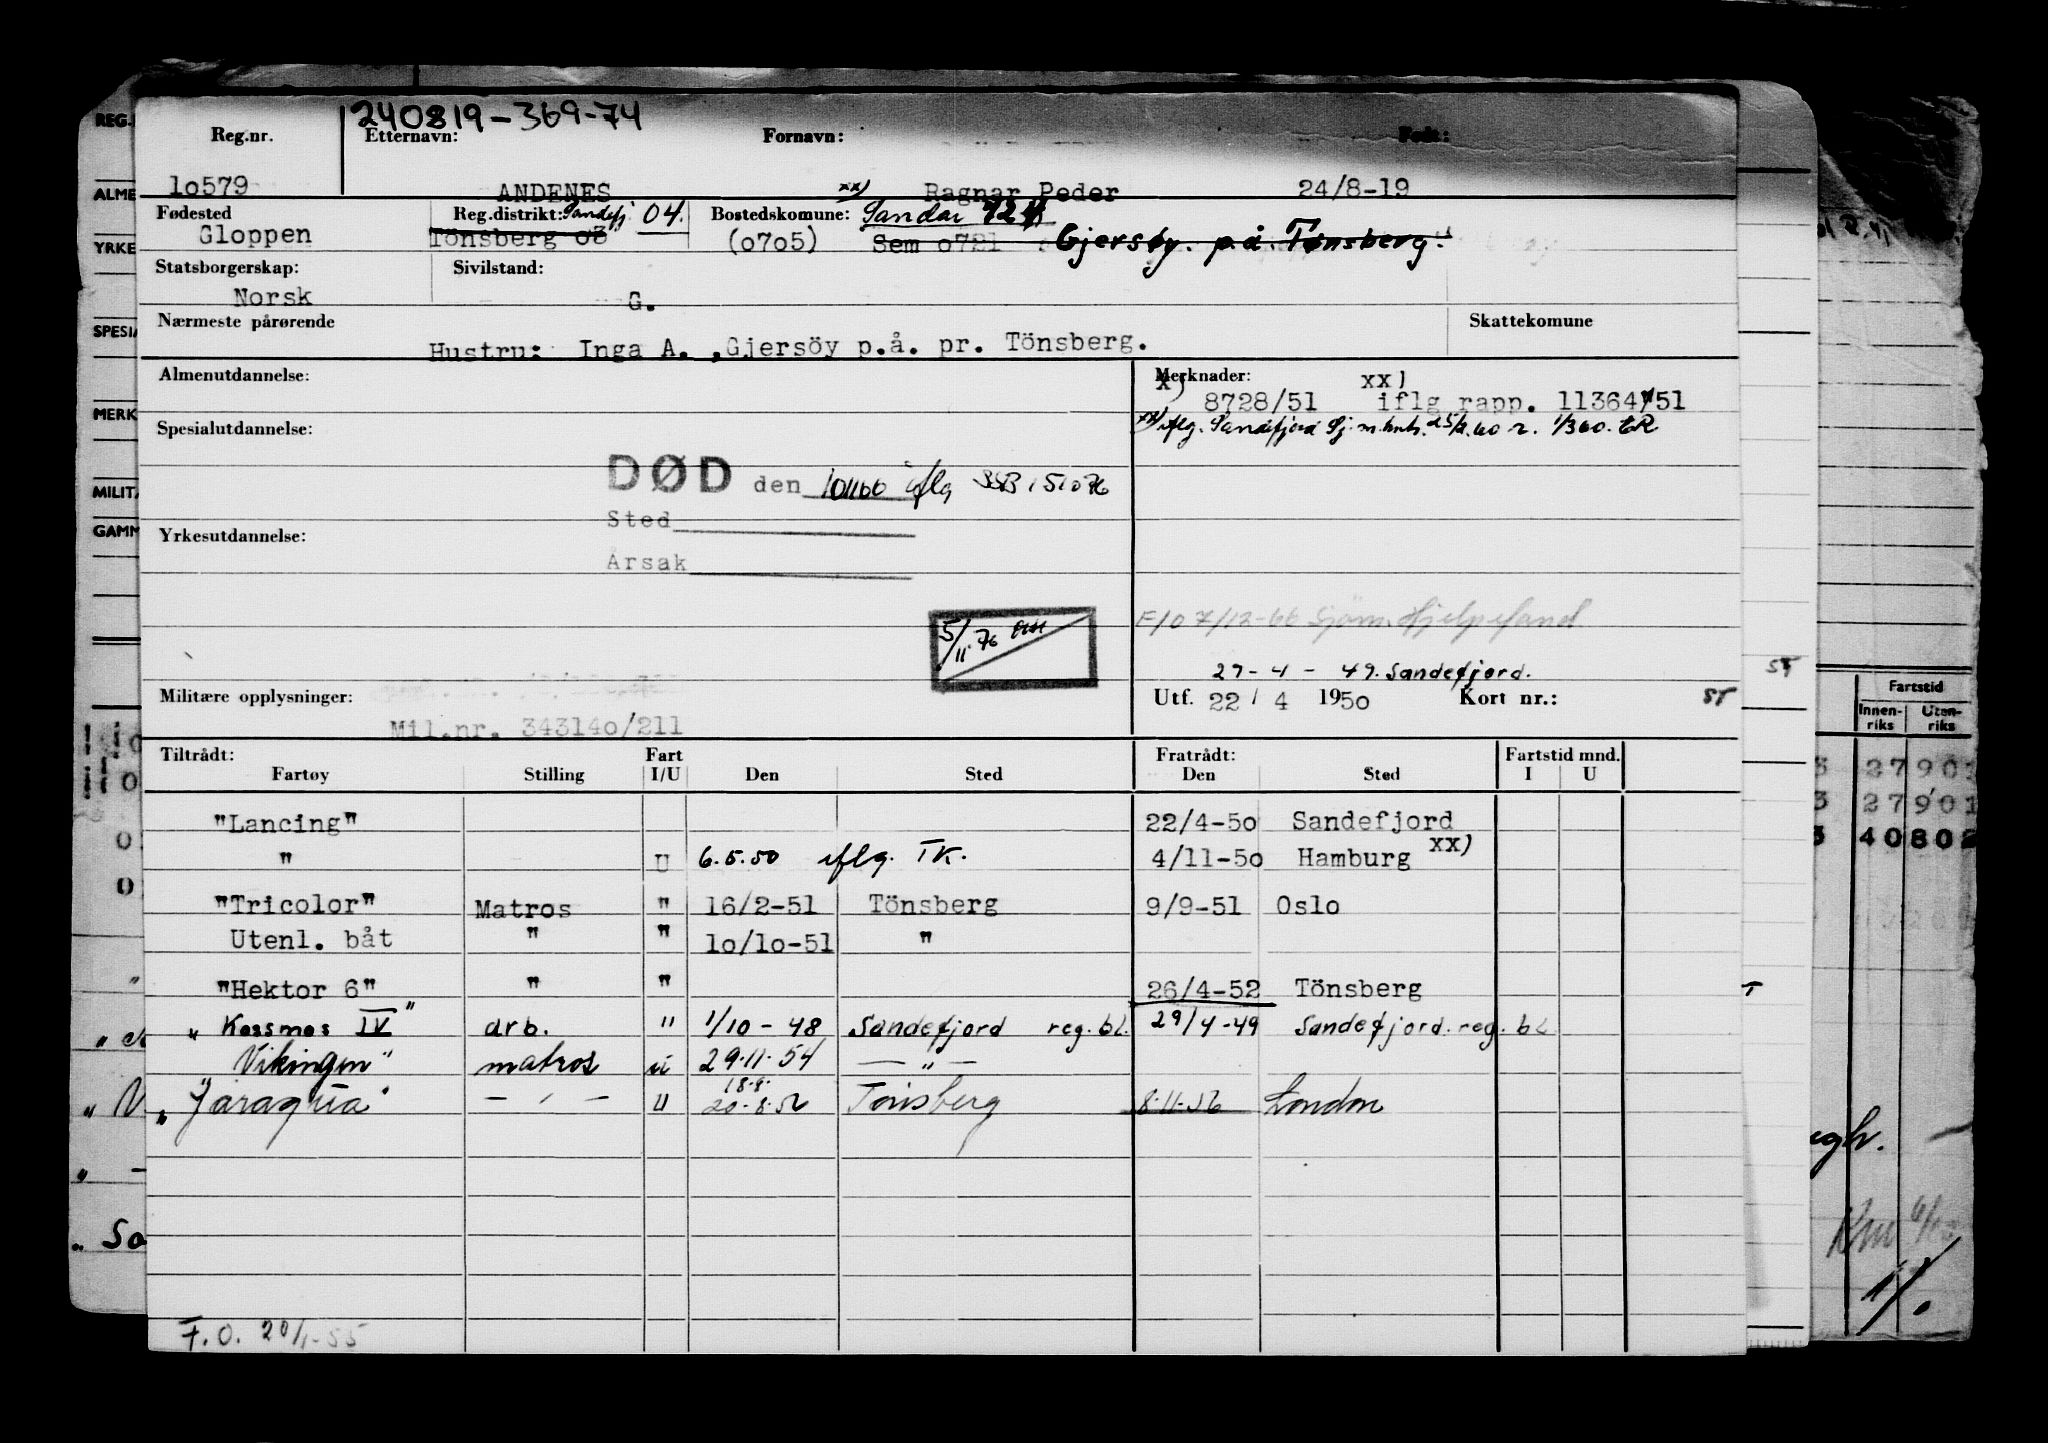 240819-369-74
Reg.nr. Etternavn: Fornavn: Født:
lo579 ANDENES xx) Ragnar Peder 24/8-19
Fødested Reg.distrikt: Sandefj. 04. Bostedskomune: Sandar
Gloppen Tönsberg o3 (o7o5) Sem o721 Gjersøy. p.å. Tønsberg.
Statsborgerskap: Sivilstand:
Norsk G.
Nærmeste pårørende Skattekomune
Hustru: Inga A. ,Gjersöy p.å. pr. Tönsberg.
Almenutdannelse: Merknader:
x) xx)
8728/51 iflg rapp. 11364/51
Spesialutdannelse: xx) iflg. Sandefjord
DØD den iflg SSB
Sted
Yrkesutdannelse:
Årsak
5/11.76
F/O 7/12-66 Sjøm. Hjelpefond
27-4-49. Sandefjord. ST
Militære opplysninger: Utf. 22 / 4 1950 Kort nr.: ST
Mil.nr. 34314o/211
Tiltrådt: Fart Fratrådt: Fartstid mnd.
Fartøy Stilling I/U Den Sted Den Sted I U
"Lancing" 22/4-5o Sandefjord
" U 6.5.50 iflg. TK. 4/11-5o Hamburg xx)
"Tricolor" Matros " 16/2-51 Tönsberg 9/9-51 Oslo
Utenl. båt " " lo/lo-51 "
"Hektor 6" " " 26/4-52 Tönsberg
"Kossmos IV" arb. " 1/10-48 Sandefjord reg.bl. 29/4-49 Sandefjord. reg. bl
Vikingen" matros u 29.11.54 — " —
18.8.
"Jaraqua" — " — U 20.8.52 Tønsberg 8.11.56 London
F.O. 20/1-55
REG.
ALME
YRKE
SPESIA
MERK
MILITÆ
GAMM
Fartstid
Innen-riks Uten-riks